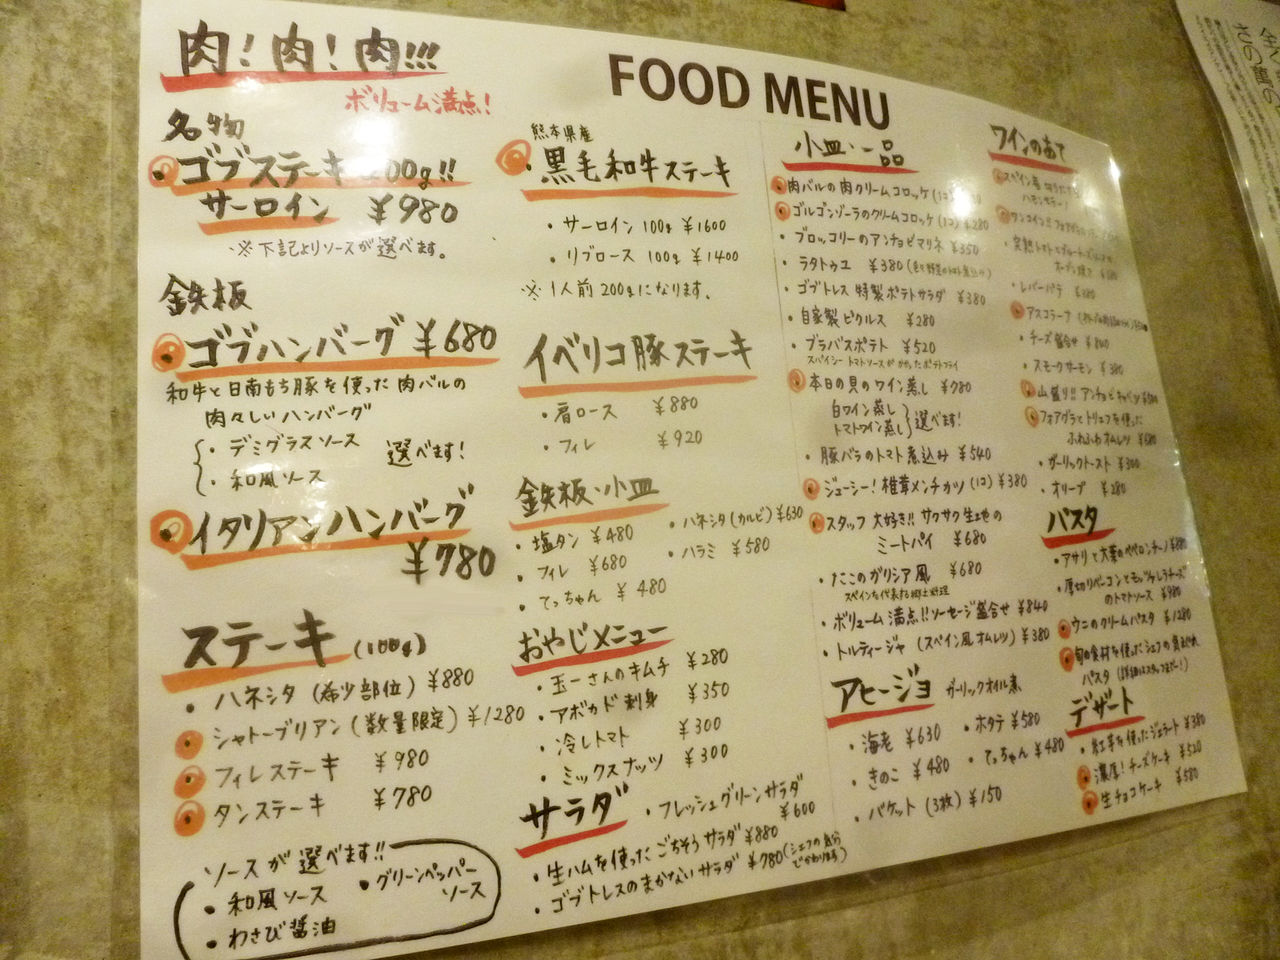 肉!肉!肉!!!
ボリューム満点!
名物
ゴブステーキ 00g!!
サーロイン ¥980
※下記よりソースが選べます。
鉄板
ゴブハンバーグ ¥680
和牛と日南もち豚を使った肉バルの
肉々しいハンバーグ
・デミグラスソース
・和風ソース
選べます!
イタリアンハンバーグ
¥780
ステーキ(100g)
・ハネシタ(希少部位)¥880
シャトーブリアン(数量限定)¥1280
フィレステーキ ¥980
タンステーキ ¥780
ソースが選べます!!
・和風ソース
・グリーンペッパー
ソース
・わさび醤油
FOOD MENU
熊本県産
黒毛和牛ステーキ
・サーロイン 100g ¥1600
・リブロース 100g ¥1400
※1人前200gになります。
イベリコ豚ステーキ
・肩ロース ¥880
・フィレ ¥920
鉄板・小皿
・塩タン ¥480
・フィレ ¥680
・てっちゃん ¥480
・ハネシタ(カルビ)¥630
・ハラミ ¥580
おやじメニュー
・玉一さんのキムチ ¥280
・アボカド刺身 ¥350
・冷しトマト ¥300
・ミックスナッツ ¥300
サラダ
・フレッシュグリーンサラダ
¥600
・生ハムを使ったごちそうサラダ ¥880
・ゴブトレスのまかないサラダ ¥780(シェフの気分でかわります)
小皿・一品
肉バルの肉クリームコロッケ(1コ)
ゴルゴンゾーラのクリームコロッケ(1コ)¥280
・ブロッコリーのアンチョビマリネ ¥350
・ラタトゥユ ¥380
・ゴブトレス特製ポテトサラダ ¥380
・自家製ピクルス ¥280
・ブラバスポテト ¥520
スパイシートマトソースがかかったポテトフライ
本日の貝のワイン蒸し ¥980
白ワイン蒸し
トマトワイン蒸し
選べます!
・豚バラのトマト煮込み ¥540
ジューシー!椎茸メンチカツ(1コ)¥380
スタッフ大好き!!サクサク生地の
ミートパイ ¥680
・たこのガリシア風 ¥680
スペインを代表する郷土料理
・ボリューム満点!!ソーセージ盛合せ ¥840
・トルティージャ(スペイン風オムレツ)¥380
アヒージョ ガーリックオイル煮
・海老 ¥630
・ホタテ ¥580
・きのこ ¥480
・てっちゃん ¥480
・バケット(3枚)¥150
ワインのあて
スペイン産
ハモンセラー!
・レバーパテ
・チーズ盛合せ
・スモークサーモン ¥380
山盛り!!アンチョビキャベツ
フォアグラとトリュフを使った
ふわふわオムレツ ¥680
・ガーリックトースト ¥300
・オリーブ ¥280
パスタ
・アサリと大葉のペペロンチーノ ¥880
・厚切りベーコンとモッツァレラチーズ
のトマトソース ¥980
ウニのクリームパスタ ¥1280
旬の食材を使ったシェフの
パスタ(詳細はスタッフまで!)
デザート
・紅芋を使ったジェラート ¥380
濃厚!チーズケーキ ¥520
生チョコケーキ ¥580